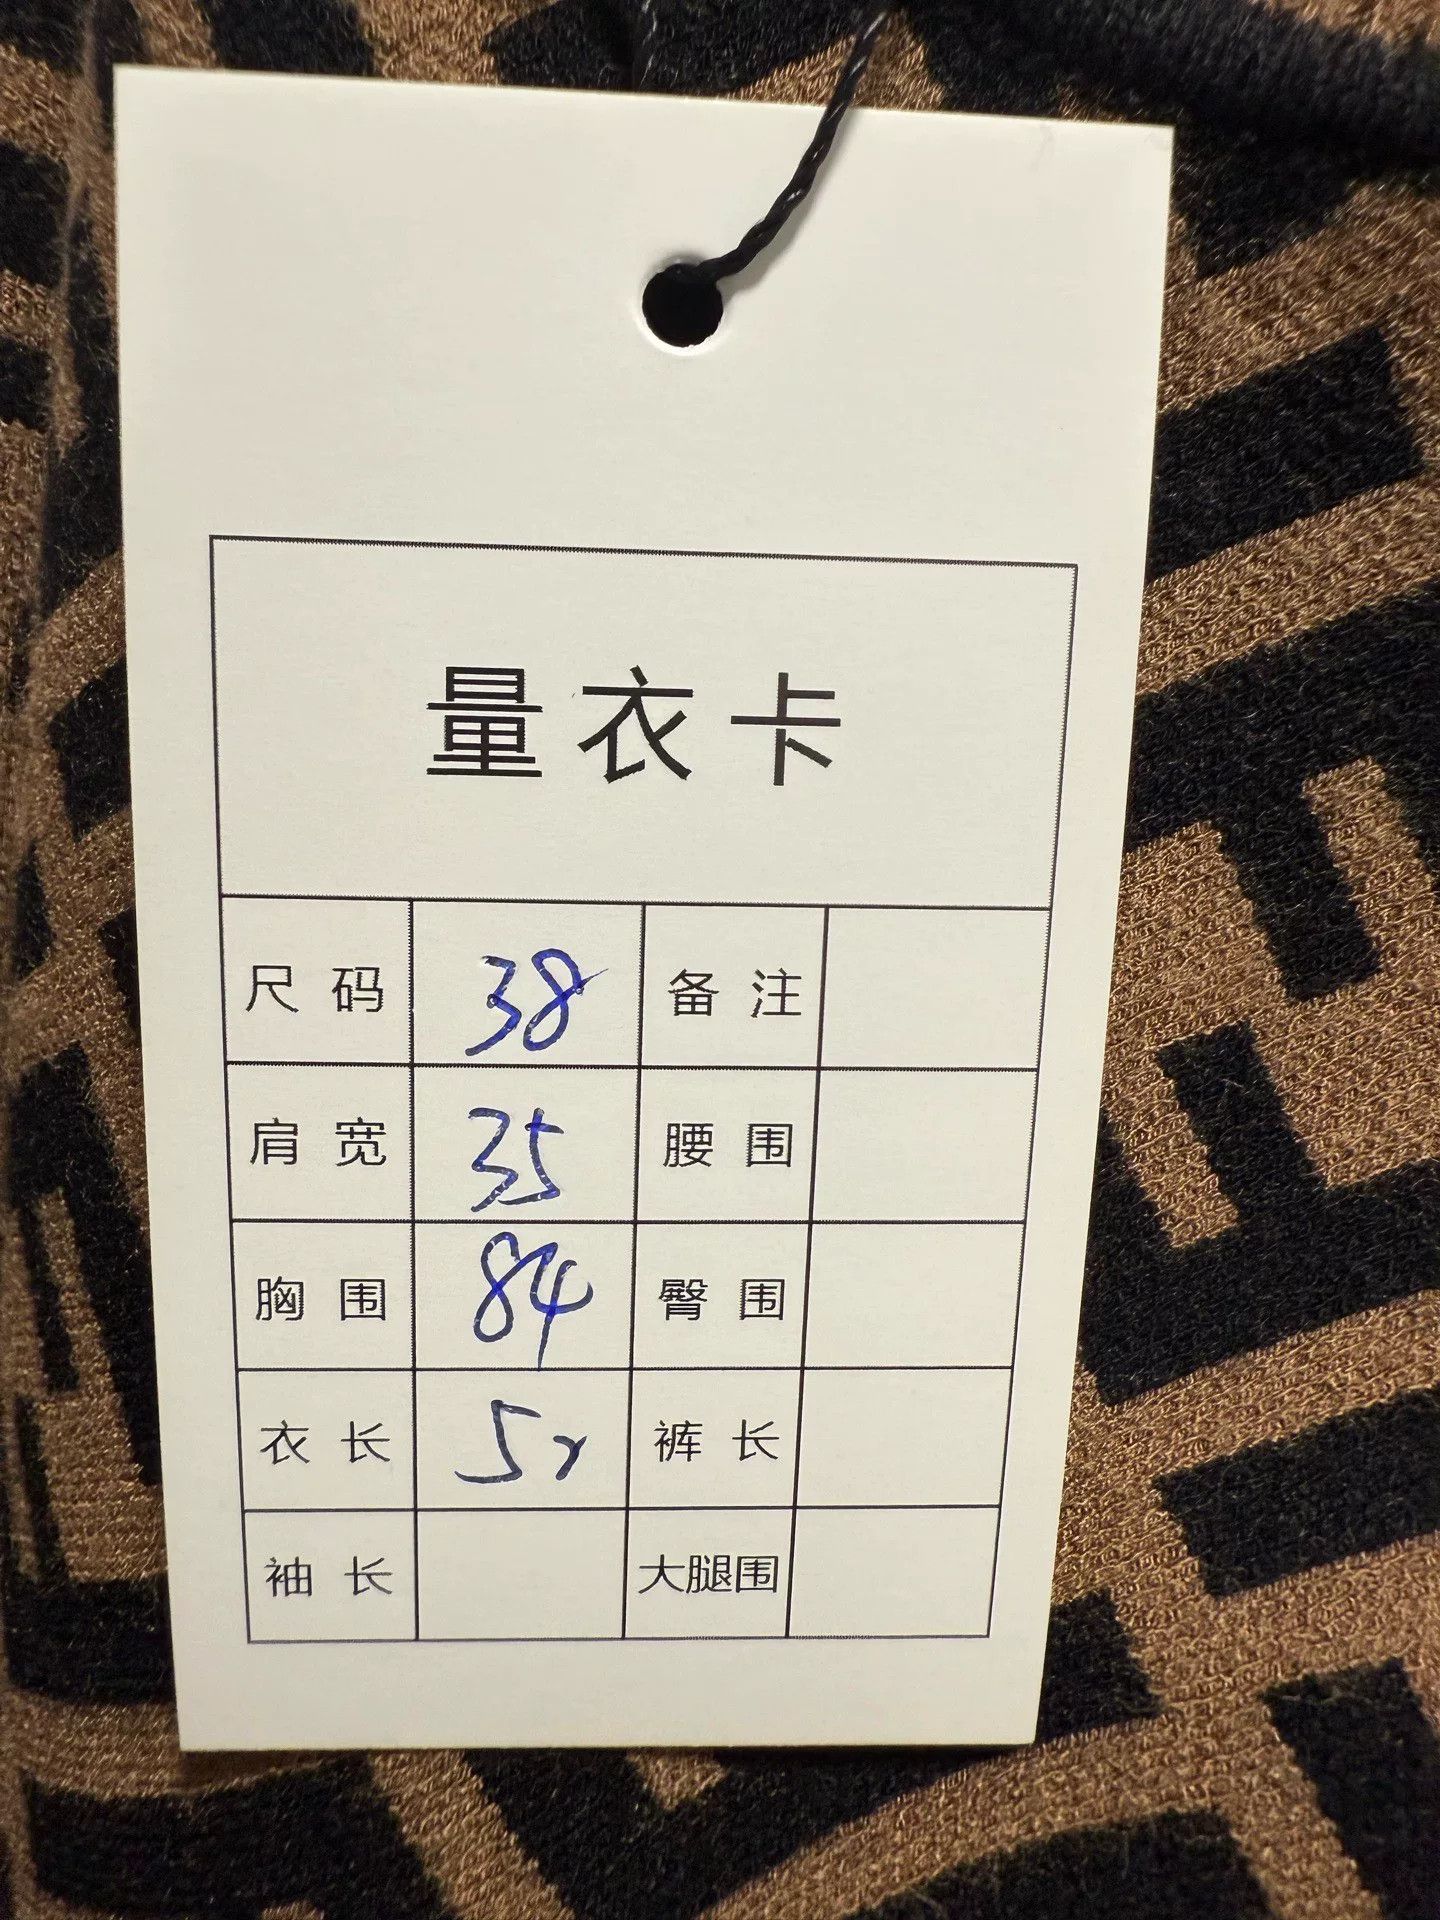 量衣卡
尺码 38 备注
肩宽 35 腰围
胸围 84 臀围
衣长 裤长
袖长 大腿围